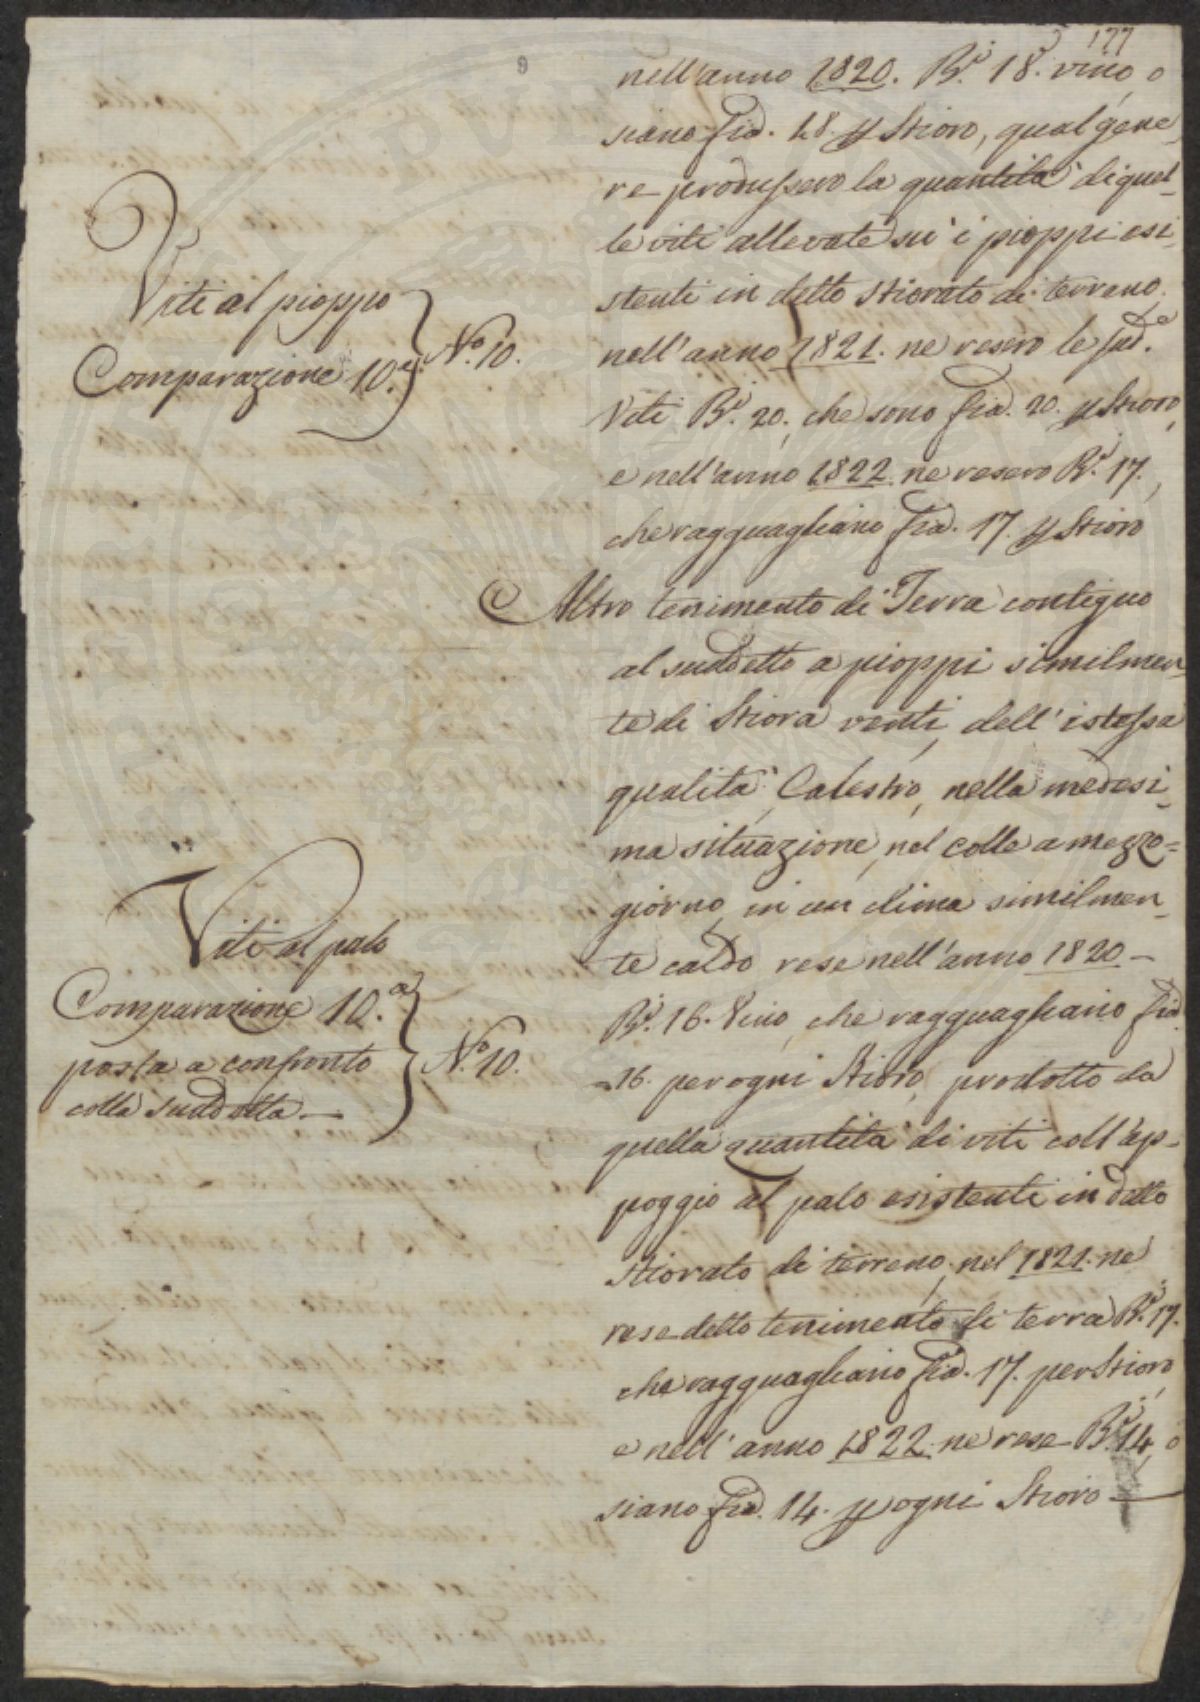 177
nell'anno 1820. B.i 18. vino, o
siano fia. 18. p Stioro, qual gene
re produssero la quantità di quel-
le viti allevate su' i pioppi esi-
stenti in detto stiorato di terreno,
nell'anno 1821. ne resero le sud.e
Viti B.i 20., che sono fia. 20. p Stioro,
e nell'anno 1822. ne resero B.i 17.,
che ragguagliano fia. 17. p Stioro
Viti al pioppo
Comparazione 10.a } N.o 10.
Altro tenimento di Terra contiguo
al suddetto a pioppi similmen-
te di Stiora venti, dell'istessa
qualità, Calestro, nella medesi-
ma situazione, nel colle a mezzo=
giorno, in un clima similmen-
te caldo rese nell'anno 1820 —
B.i 16. Vino, che ragguagliano fia.
16. per ogni Stioro, prodotto da
quella quantità di viti coll'ap-
poggio al palo esistenti in detto
Stiorato di terreno, nel 1821. ne
rese detto tenimento di terra B.i 17.
che ragguagliano fia. 17. per Stioro,
e nell'anno 1822. ne rese B.i 14, o
siano fia. 14. p ogni Stioro —
Viti al palo
Comparazione 10.a
posta a confronto } N.o 10.
colla suddetta —